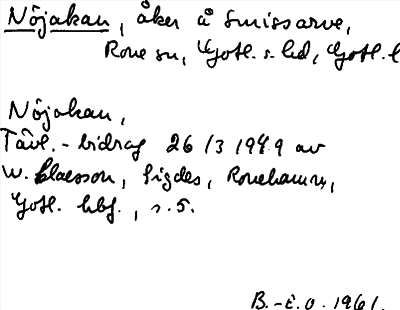 Nöjakan, åker å Smissarve,
Rone sn, Gotl. s. hd, Gotl. l
Nöjakan,
Tävl.-bidrag 26/3 1949 av
W. Claesson, Sigdes, Ronehamn,
Gotl. hbf., s. 5.
B.-E.O. 1961.